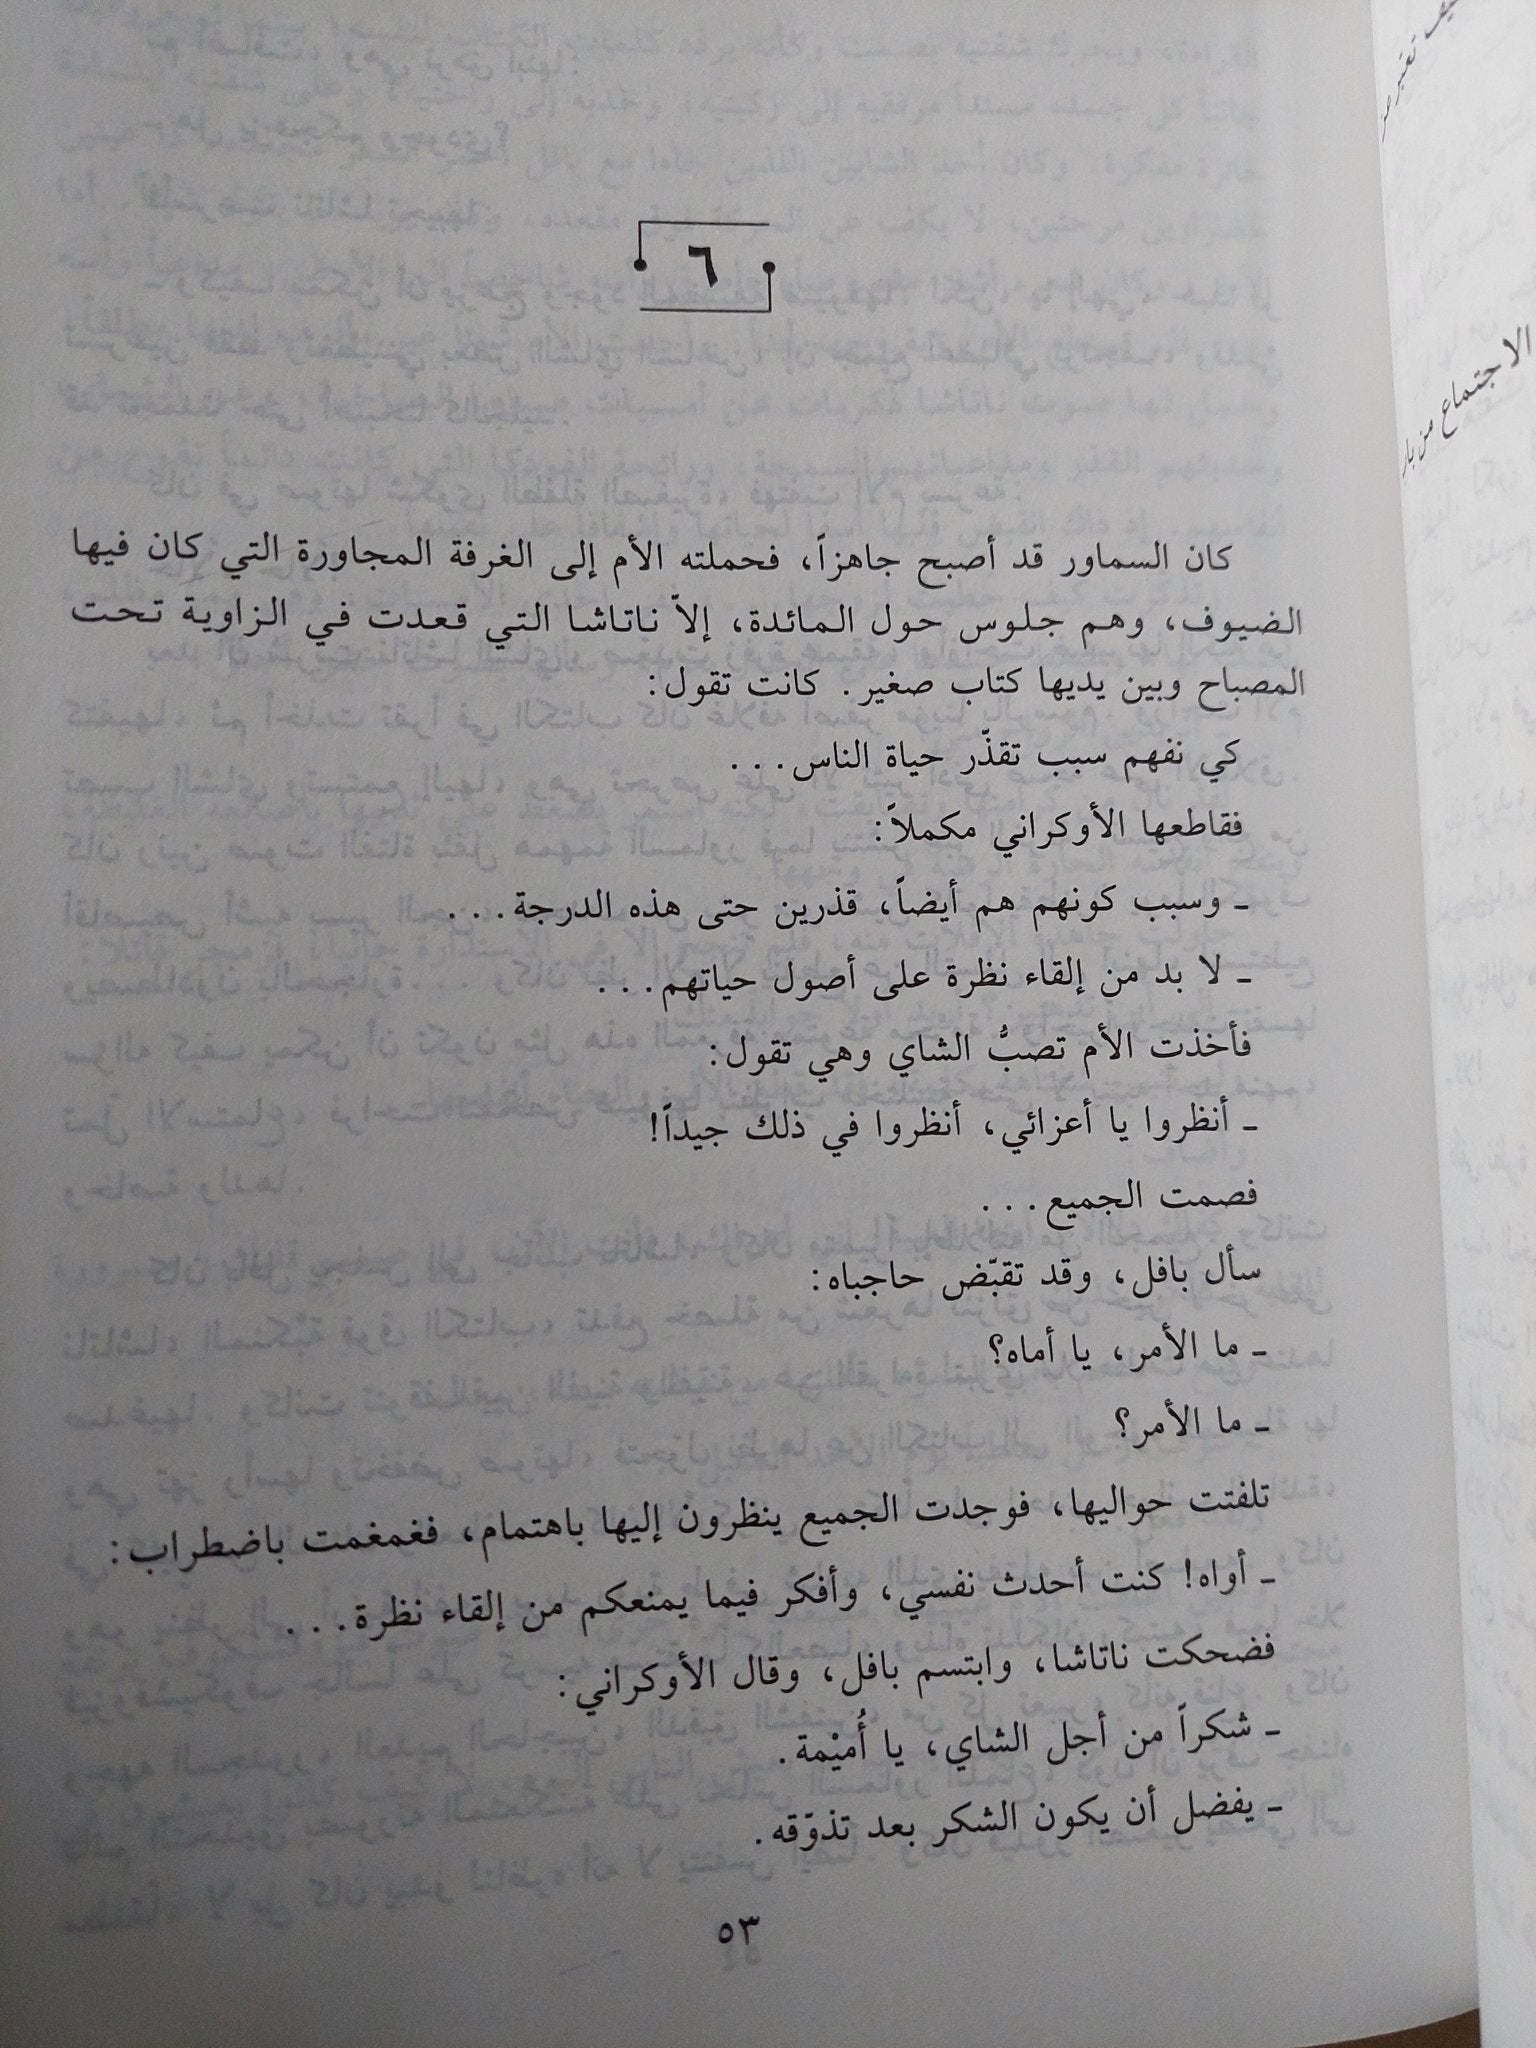 ٦
كان السماور قد أصبح جاهزاً، فحملته الأم إلى الغرفة المجاورة التي كان فيها
الضيوف، وهم جلوس حول المائدة، إلاّ ناتاشا التي قعدت في الزاوية تحت
المصباح وبين يديها كتاب صغير. كانت تقول:
كي نفهم سبب تقذّر حياة الناس...
فقاطعها الأوكراني مكملاً:
ـ وسبب كونهم هم أيضاً، قذرين حتى هذه الدرجة...
ـ لا بد من إلقاء نظرة على أصول حياتهم...
فأخذت الأم تصبُّ الشاي وهي تقول:
ـ أنظروا يا أعزائي، أنظروا في ذلك جيداً!
فصمت الجميع...
سأل بافل، وقد تقبّض حاجباه:
ـ ما الأمر، يا أماه؟
ـ ما الأمر؟
تلفتت حواليها، فوجدت الجميع ينظرون إليها باهتمام، فغمغمت باضطراب:
ـ أواه! كنت أحدث نفسي، وأفكر فيما يمنعكم من إلقاء نظرة...
فضحكت ناتاشا، وابتسم بافل، وقال الأوكراني:
ـ شكراً من أجل الشاي، يا أُميْمة.
ـ يفضل أن يكون الشكر بعد تذوّقه.
٥٣
الاجتماع من